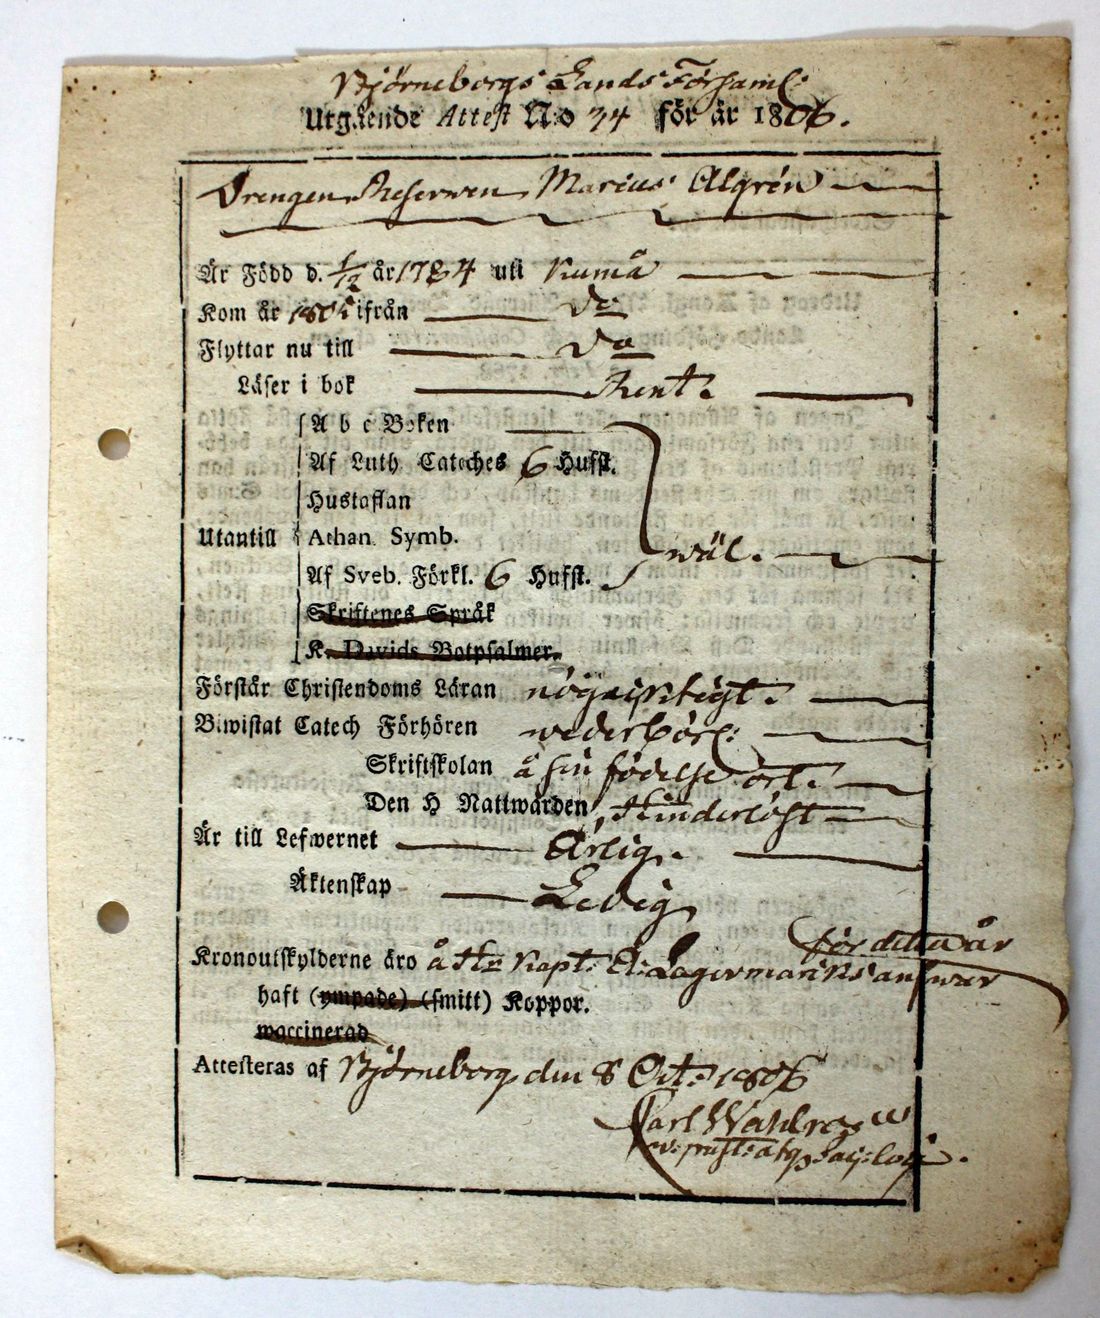 Björneborgs Lands Församl:
Utgående Attest N:o 34 för år 1806.
Drengen Reserwen Marcus Algrén
Är Född d. 1/12 år 1784 uti Kumå
Kom år 1805 ifrån Do
Flyttar nu till Do
Läser i bok Rent.
A b c Boken
Af Luth Cateches 6 Hufst.
Hustaflan
Utantill Athan. Symb. wäl.
Af Sveb. Förkl. 6 Hufst.
Skriftenes Språk
K. Davids Botpsalmer.
Förstår Christendoms Läran nögaktigt.
Biwistat Catech Förhören wederbörl:
Skriftskolan å sin födelse ort.
Den H Nattwarden, Hinderlöst
Är till Lefwernet Ärlig.
Äktenskap Ledig
för detta år
Kronoutskylderne äro å Hr Kapt: E: Lagermarcks answar
haft (ympade) (smitt) Koppor.
waccinerad
Attesteras af Björneborg den 8 Oct: 1806
Carl Wahlroos